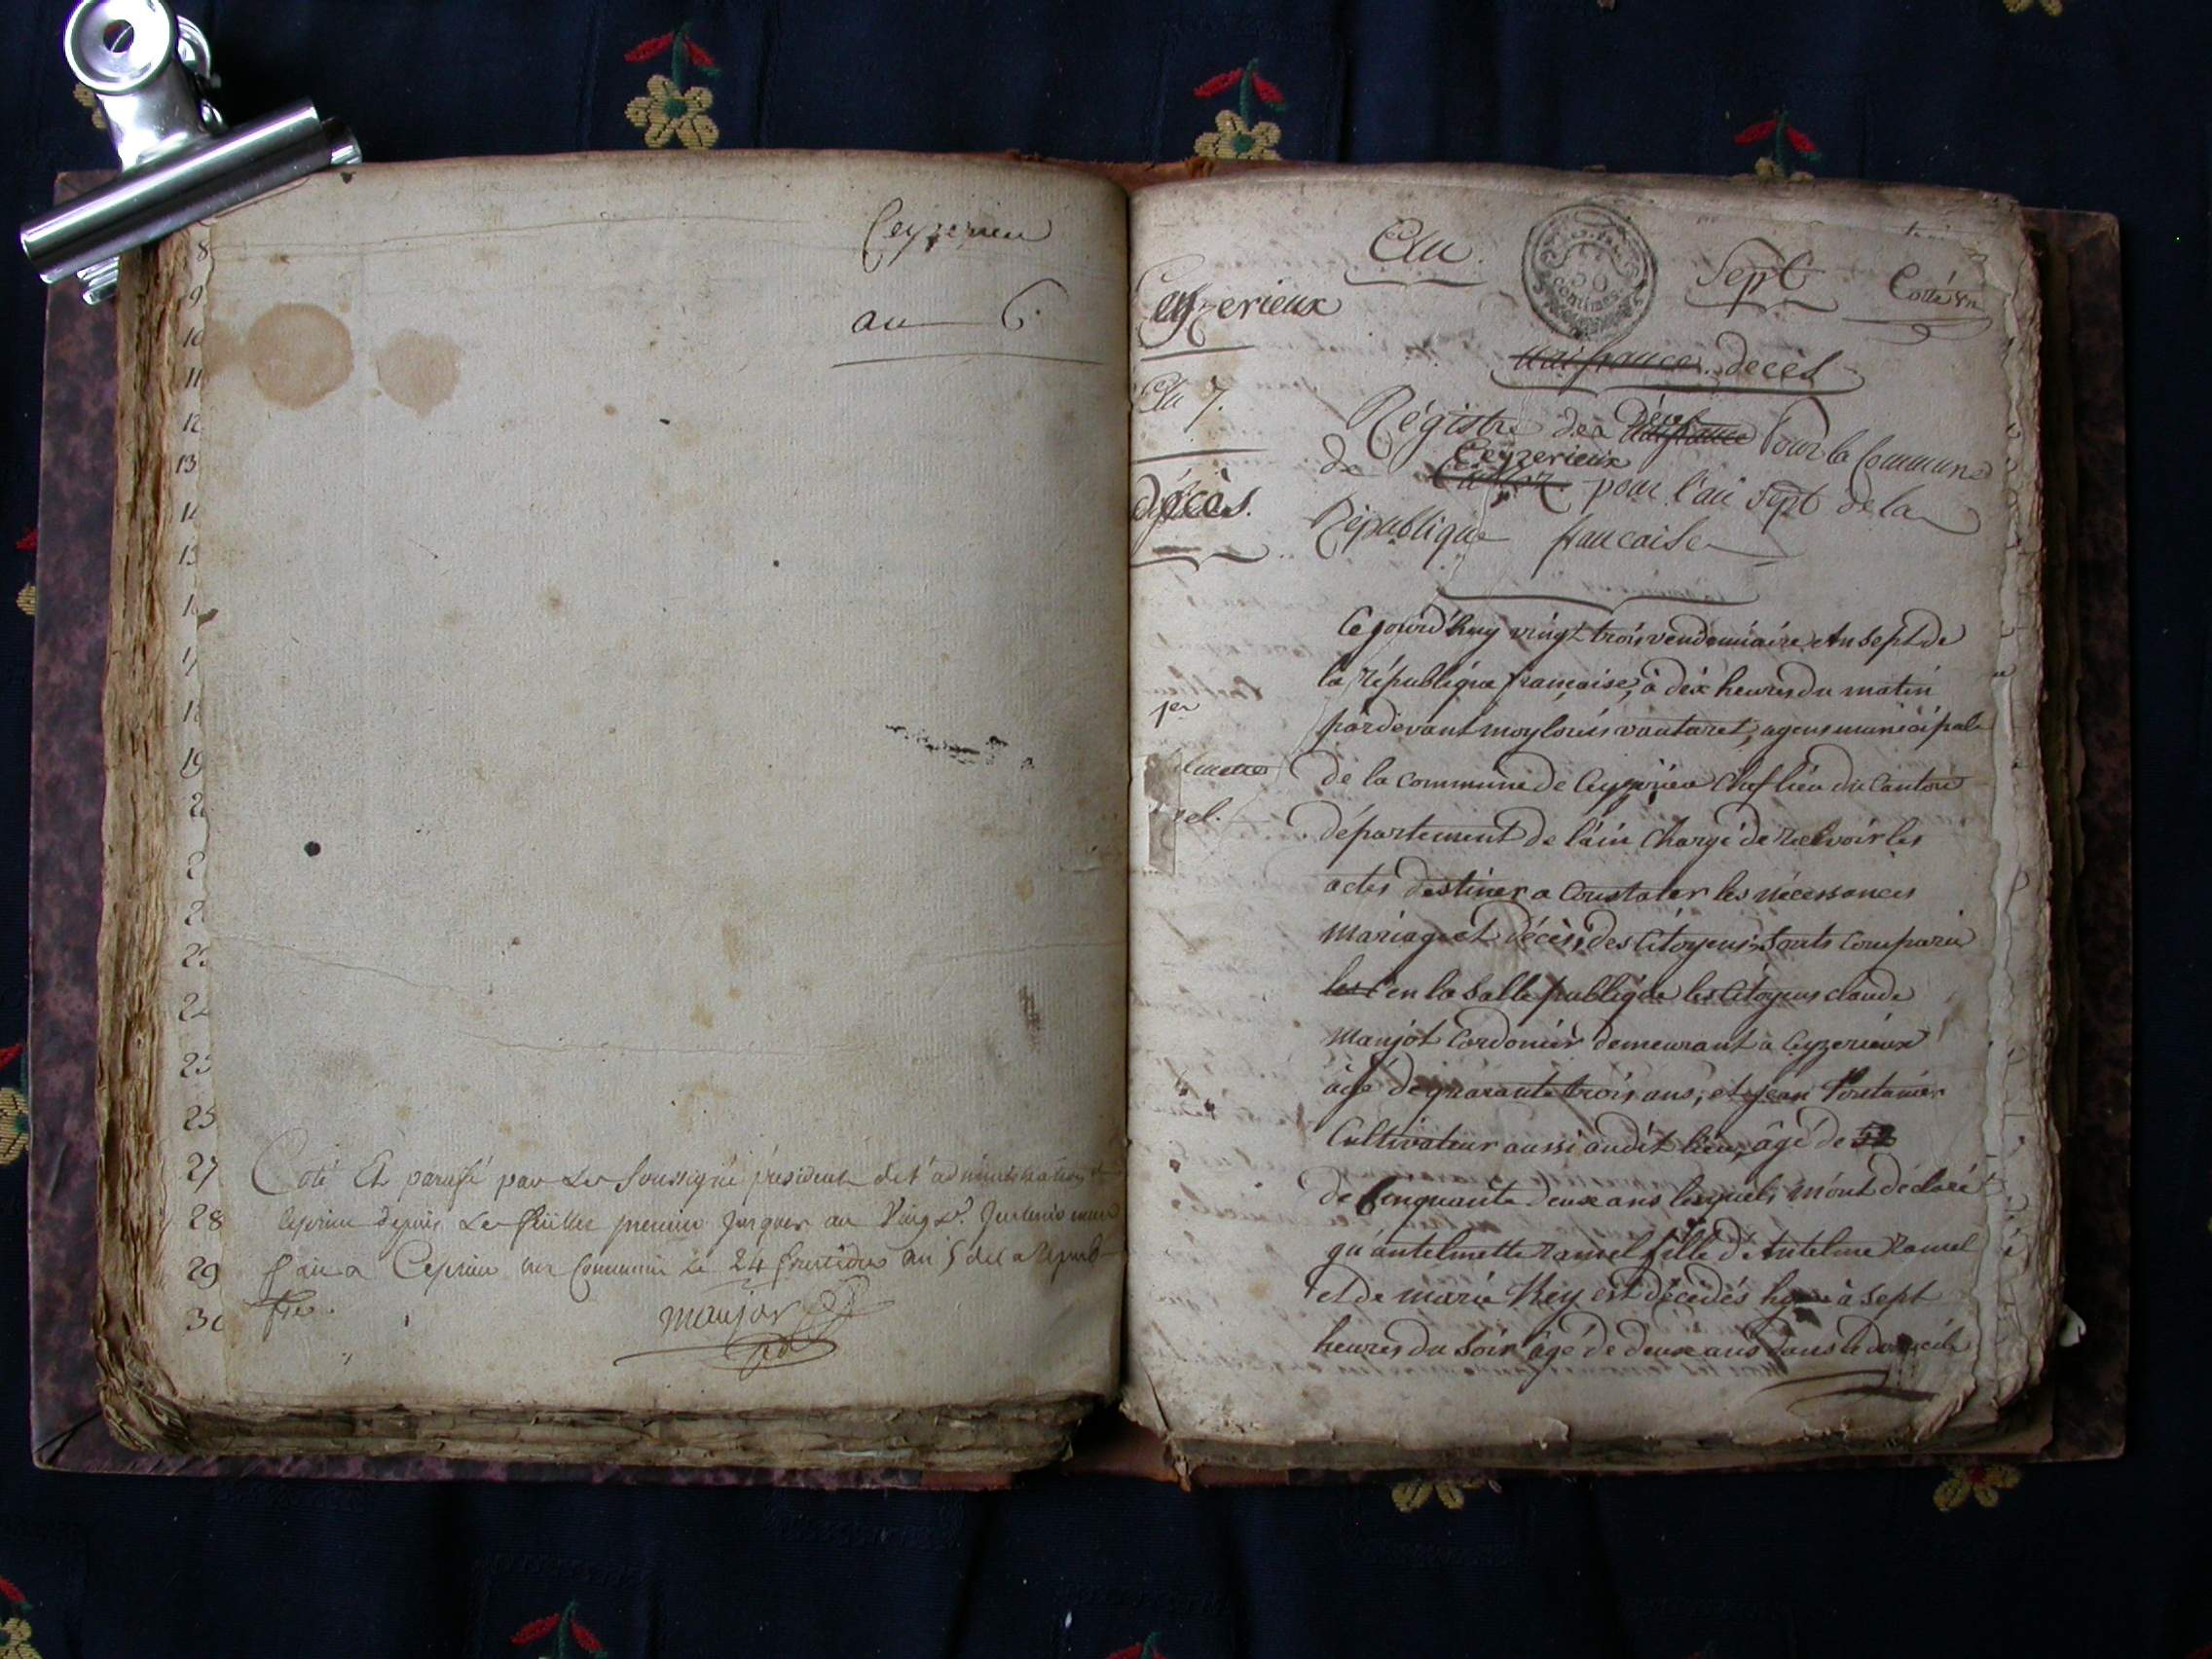 8
9
10
11
12
13
14
15
1
1
18
19
2
2
2
23
24
25
25
27
28
29
30
Ceyzerieu
an 6.
Coté Et paraphé par Le Soussigné président de l'administration
Ceyzrieu depuis Le feuillet premier jusques au
fait a Ceyzrieu en Commune le 24 fructidor an 5 de la Republ
fse.
manjot
An
50
centimes
Sept
Cotté
Ceyzerieux
naissance. decès
An 7.
décès.
Régistre des Décès naissance Pour la Commune
de Ceyzerieux pour l'an sept de la
République francaise
1er
Cejourd'huy vingt trois vendemiaire An sept de
la république française, à dix heures du matin
pardevant moy louis vautaret, agent municipal
de la commune de Ceyzerieu Chef lieu du Canton
département de l'ain Chargé de recevoir les
actes destiner a Constater les nécessances
mariage et décès, des Citoyens, sonts Comparu
les en la Salle publique les Citoyens claude
manjot Cordonier demeurant a Ceyzerieux
âgé de quarante trois ans, et jean
Cultivateur aussi audit lieu, âgé de 52
de Cinquante deux ans lesquels m'ont déclaré
qu'antelmette ramel fille d'Antelme ramel
et de marie Rey est décédés hyer à sept
heures du soir âgé de deux ans dans le domicile
mettes
el.